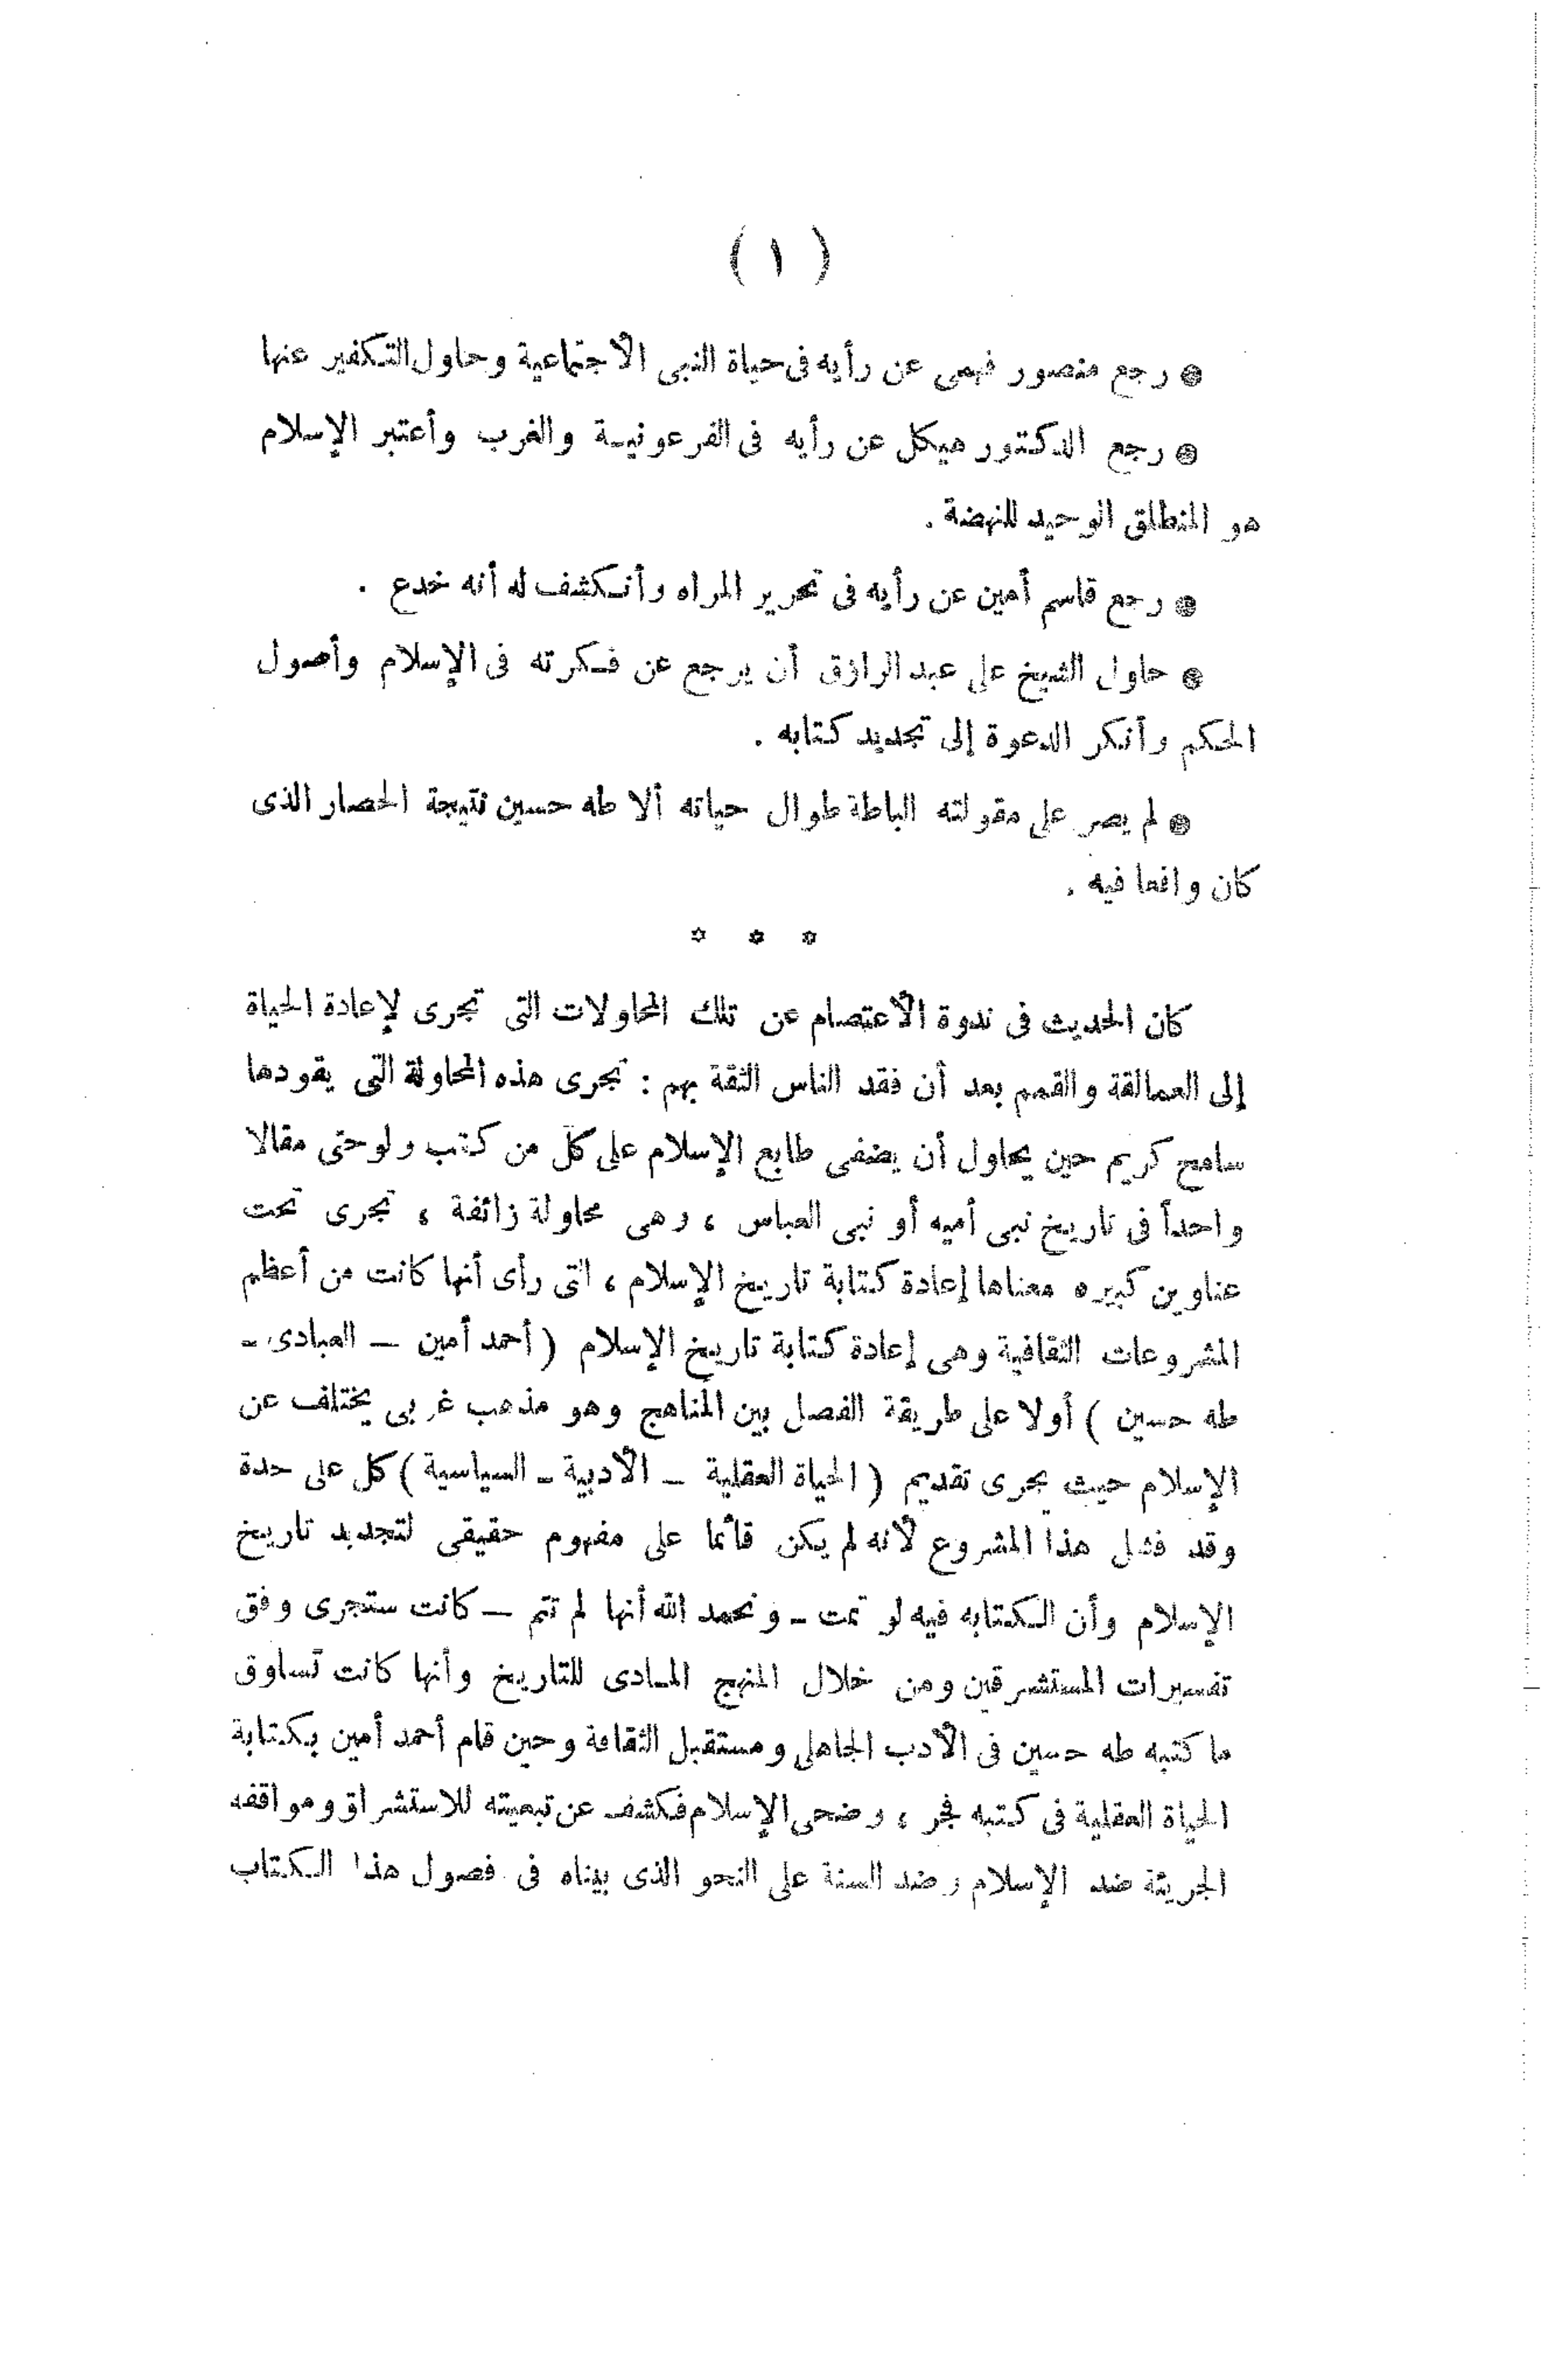 ( ١ )
● رجع منصور فهمى عن رأيه فى حياة النبى الأجتماعية وحاول التكفير عنها
● رجع الدكتور هيكل عن رأيه فى الفرعونية والغرب وأعتبر الإسلام
هو المنطلق الوحيد للنهضة .
● رجع قاسم أمين عن رأيه فى تحرير المراه وأنكشف له أنه خدع .
● حاول الشيخ على عبد الرازق أن يرجع عن فكرته فى الإسلام وأصول
الحكم وأنكر الدعوة إلى تجديد كتابه .
● لم يصر على مقولته الباطة طوال حياته ألا طه حسين نتيجة الحصار الذى
كان واقعا فيه .
* * *
كان الحديث فى ندوة الأعتصام عن تلك المحاولات التى تجرى لإعادة الحياة
إلى العمالقة والقمم بعد أن فقد الناس الثقة بهم : تجرى هذه المحاولة التى يقودها
سامح كريم حين يحاول أن يضفى طابع الإسلام على كل من كتب ولو حتى مقالا
واحداً فى تاريخ نبى أميه أو نبى العباس ، وهى محاولة زائفة ، تجرى تحت
عناوين كبيره معناها إعادة كتابة تاريخ الإسلام ، التى رأى أنها كانت من أعظم
المشروعات الثقافية وهى إعادة كتابة تاريخ الإسلام ( أحمد أمين – العبادى -
طه حسين ) أولا على طريقة الفصل بين المناهج وهو مذهب غربى يختلف عن
الإسلام حيث يجرى تقديم ( الحياة العقلية – الأدبية - السياسية ) كل على حدة
وقد فشل هذا المشروع لأنه لم يكن قائما على مفهوم حقيقى لتجديد تاريخ
الإسلام وأن الكتابه فيه لو تمت - ونحمد الله أنها لم تتم – كانت ستجرى وفق
تفسيرات المستشرقين ومن خلال المنهج المادى للتاريخ وأنها كانت تساوق
ما كتبه طه حسين فى الأدب الجاهلى ومستقبل الثقافة وحين قام أحمد أمين بكتابة
الحياة العقلية فى كتبه فجر ، وضحى الإسلام فكشف عن تبعيته للاستشراق ومواقفه
الجريئة ضد الإسلام وضد السنة على النحو الذى بيناه فى فصول هذا الكتاب